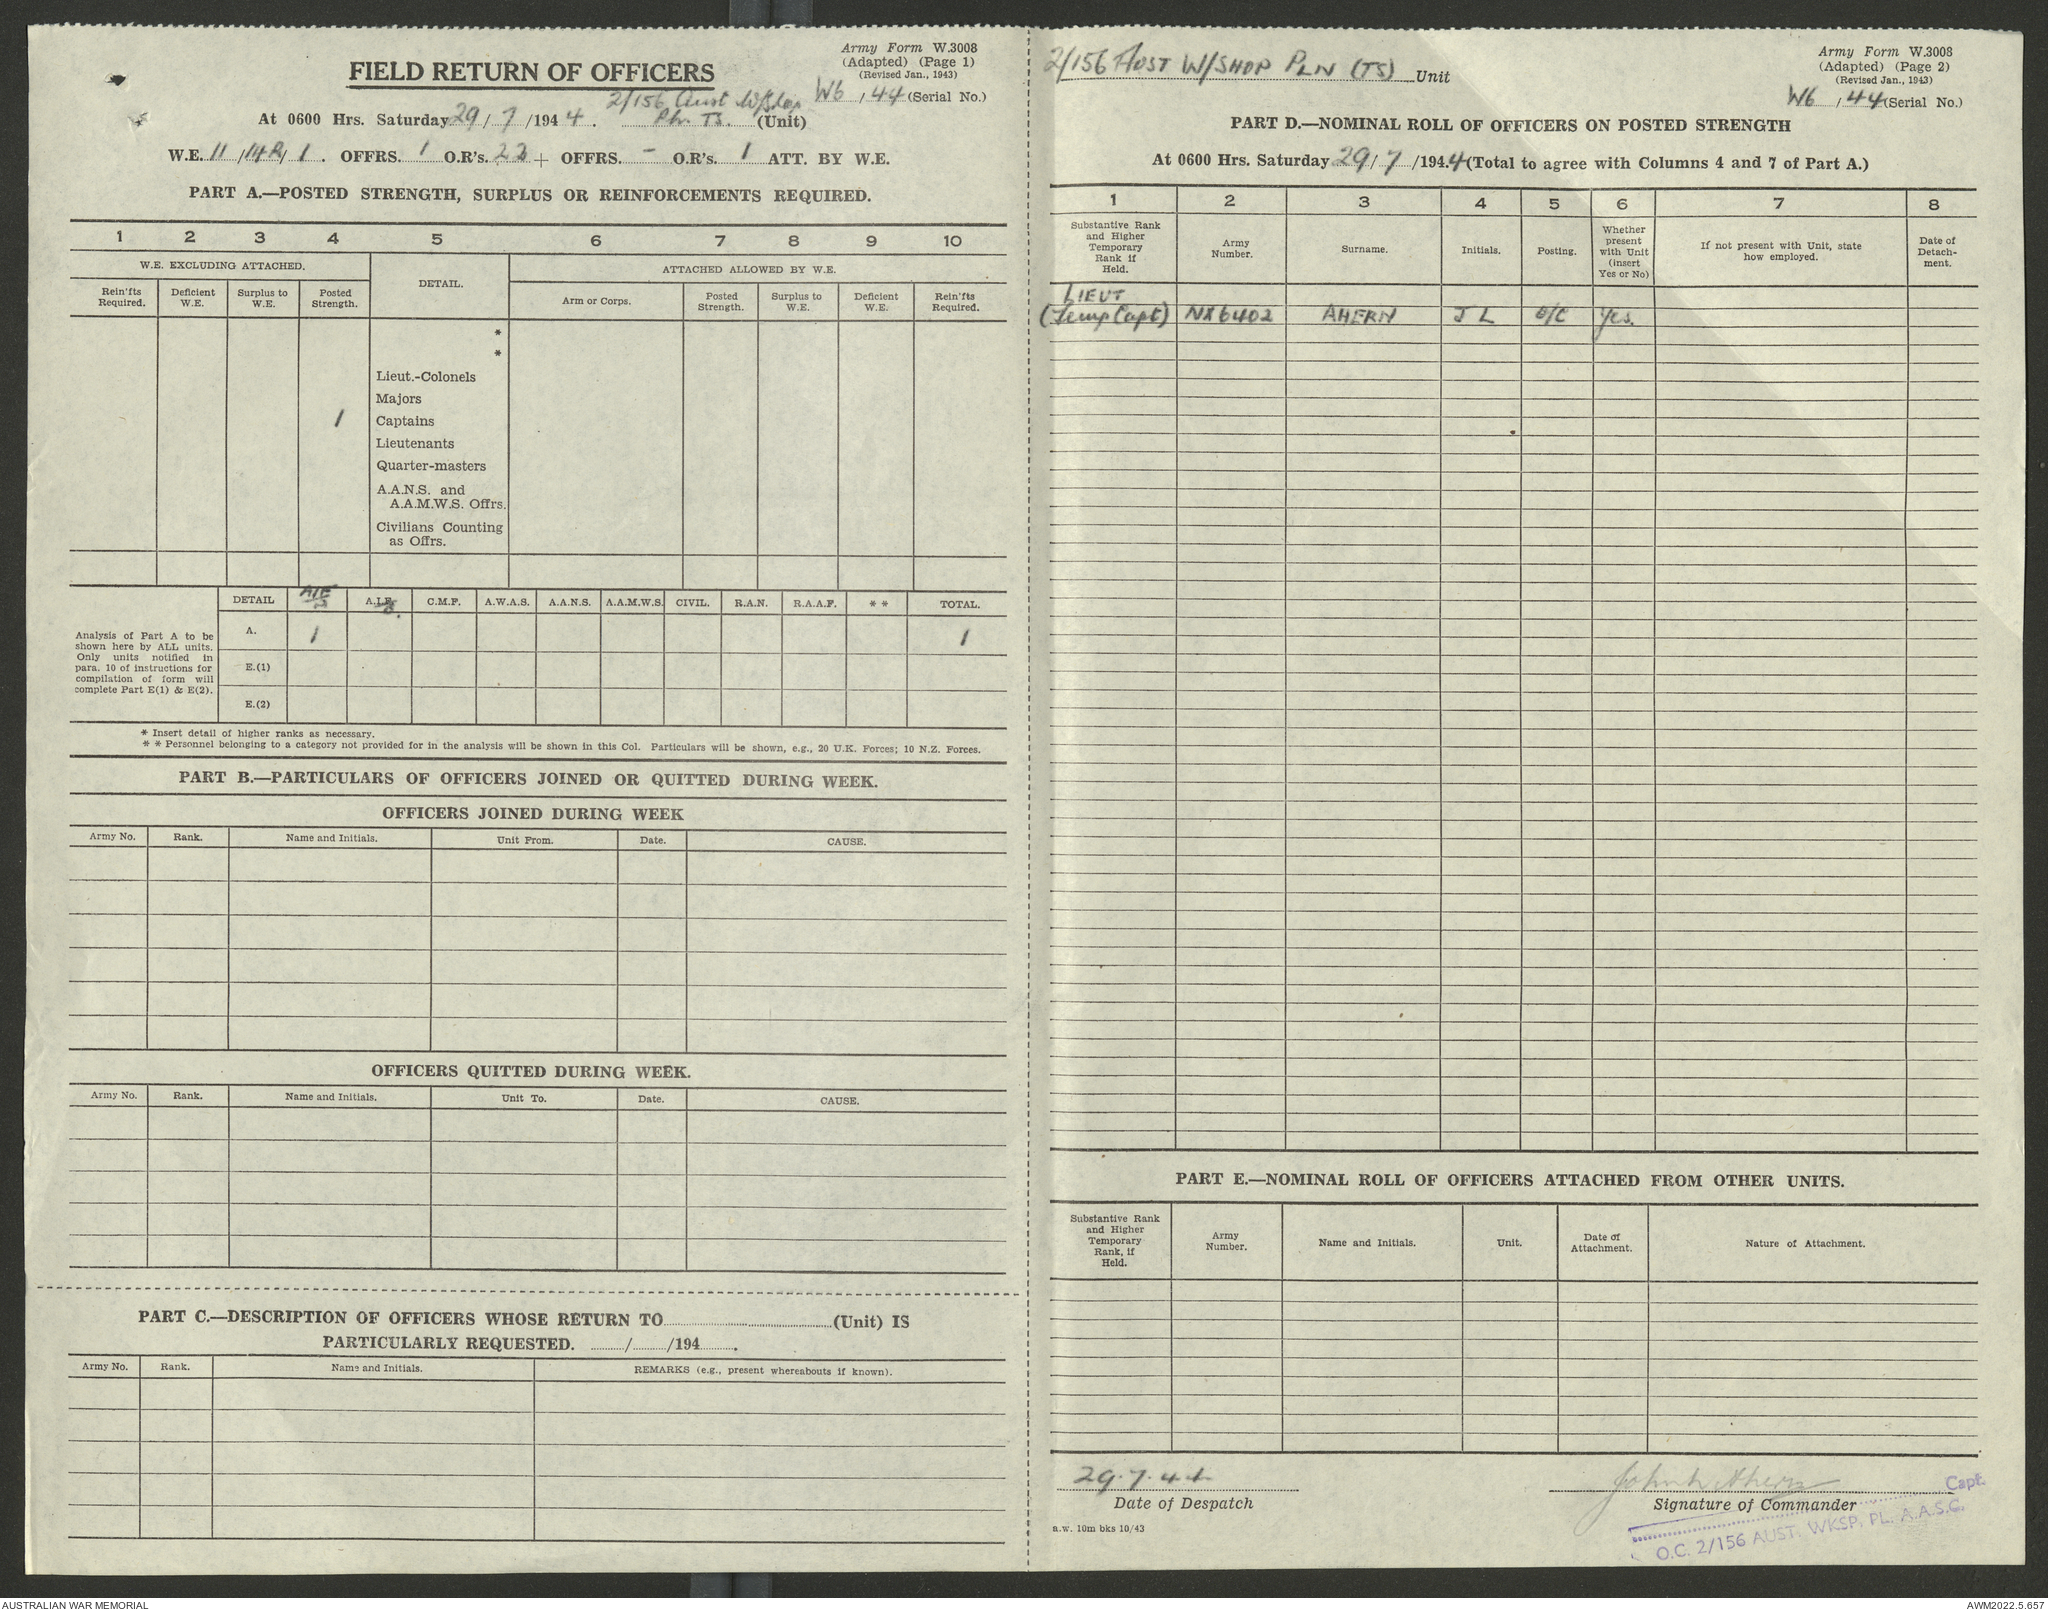 Army Form W.3008
(Adapted) (Page 1)
(Revised Jan., 1943)
FIELD RETURN OF OFFICERS
2/156 Aust W/Shop W6 / 44 (Serial No.)
At 0600 Hrs. Saturday 29/7/1944. Pln. TS. (Unit)
W.E. 11 / / 1. OFFRS. 1 O.R's. 22 + OFFRS. - O.R's. 1 ATT. BY W.E.
PART A.—POSTED STRENGTH, SURPLUS OR REINFORCEMENTS REQUIRED.
1 2 3 4 5 6 7 8 9 10
W.E. EXCLUDING ATTACHED. DETAIL. ATTACHED ALLOWED BY W.E.
Rein'fts Required. Deficient W.E. Surplus to W.E. Posted Strength. Arm or Corps. Posted Strength. Surplus to W.E. Deficient W.E. Rein'fts Required.
*
*
Lieut.-Colonels
Majors
1 Captains
Lieutenants
Quarter-masters
A.A.N.S. and
A.A.M.W.S. Offrs.
Civilians Counting
as Offrs.
DETAIL AIF A.I.F. C.M.F. A.W.A.S. A.A.N.S. A.A.M.W.S. CIVIL. R.A.N. R.A.A.F. * * TOTAL.
Analysis of Part A to be
shown here by ALL units.
Only units notified in
para. 10 of instructions for
compilation of form will
complete Part E(1) & E(2).
A. 1 1
E.(1)
E.(2)
* Insert detail of higher ranks as necessary.
* * Personnel belonging to a category not provided for in the analysis will be shown in this Col. Particulars will be shown, e.g., 20 U.K. Forces; 10 N.Z. Forces.
PART B.—PARTICULARS OF OFFICERS JOINED OR QUITTED DURING WEEK.
OFFICERS JOINED DURING WEEK
Army No. Rank. Name and Initials. Unit From. Date. CAUSE.
OFFICERS QUITTED DURING WEEK.
Army No. Rank. Name and Initials. Unit To. Date. CAUSE.
PART C.—DESCRIPTION OF OFFICERS WHOSE RETURN TO (Unit) IS
PARTICULARLY REQUESTED. / /194 .
Army No. Rank. Name and Initials. REMARKS (e.g., present whereabouts if known).
2/156 AUST W/SHOP PLN (TS) Unit
Army Form W.3008
(Adapted) (Page 2)
(Revised Jan., 1943)
W6 / 44 (Serial No.)
PART D.—NOMINAL ROLL OF OFFICERS ON POSTED STRENGTH
At 0600 Hrs. Saturday 29/7/1944 (Total to agree with Columns 4 and 7 of Part A.)
1 2 3 4 5 6 7 8
Substantive Rank and Higher Temporary Rank if Held. Army Number. Surname. Initials. Posting. Whether present with Unit (insert Yes or No) If not present with Unit, state how employed. Date of Detach-ment.
LIEUT
(Temp Capt) NX6402 AHERN J L O/C Yes.
PART E.—NOMINAL ROLL OF OFFICERS ATTACHED FROM OTHER UNITS.
Substantive Rank and Higher Temporary Rank, if Held. Army Number. Name and Initials. Unit. Date of Attachment. Nature of Attachment.
29.7.44
Date of Despatch
John L Ahern Capt.
Signature of Commander
O.C. 2/156 AUST. WKSP. PL. A.A.S.C.
a.w. 10m bks 10/43
AUSTRALIAN WAR MEMORIAL
AWM2022.5.657